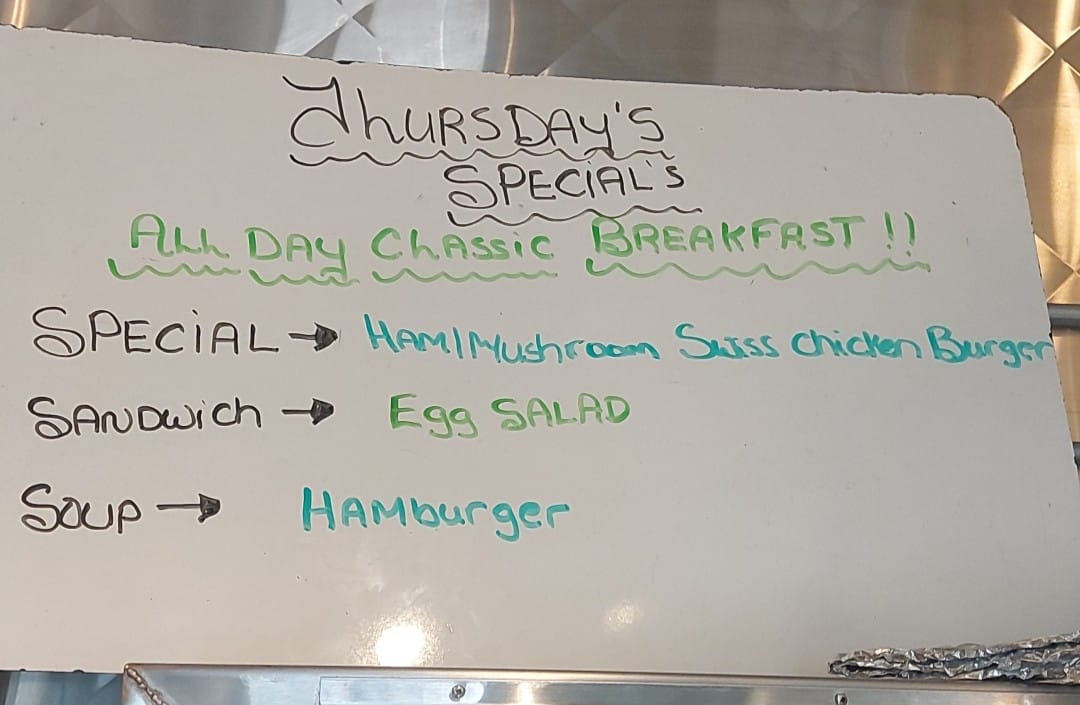 THURSDAY'S
SPECIAL'S
ALL DAY CLASSIC BREAKFAST!!
SPECIAL → HAM/Mushroom Swiss chicken Burger
SANDWich → Egg SALAD
SOUP → HAMburger